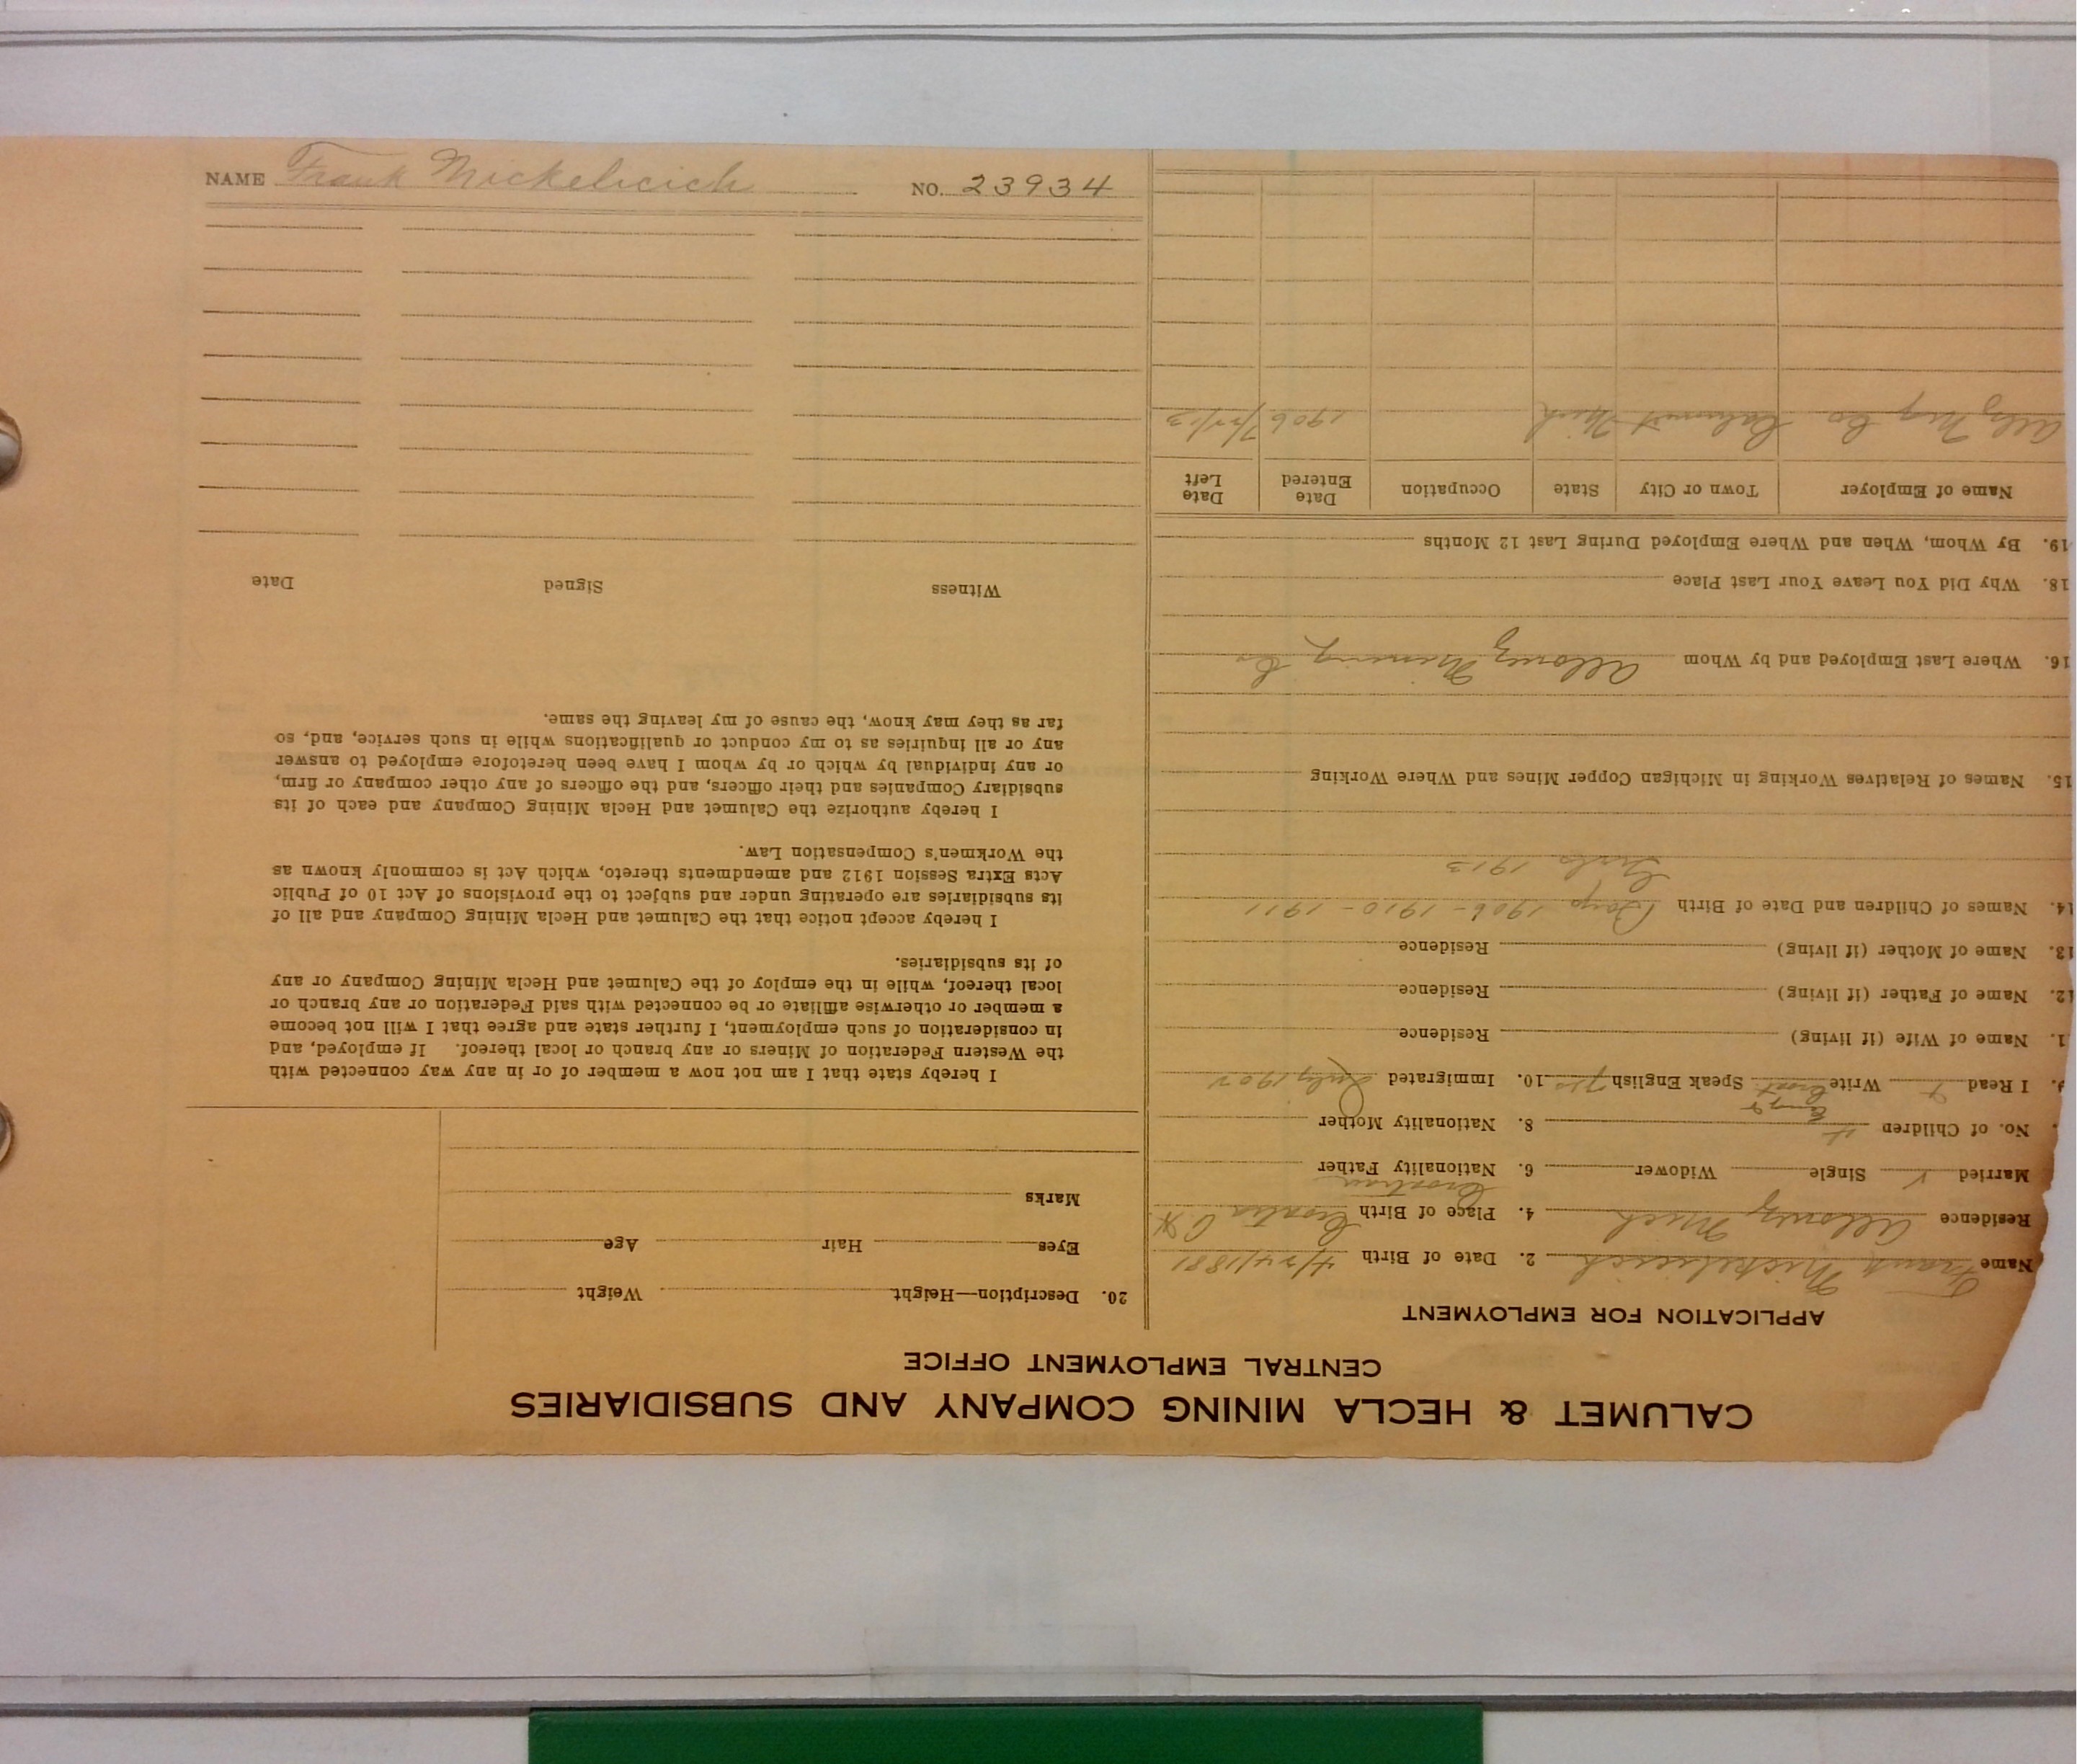 CALUMET & HECLA MINING COMPANY AND SUBSIDIARIES
CENTRAL EMPLOYMENT OFFICE
APPLICATION FOR EMPLOYMENT
Name Frank Mickelicich 2. Date of Birth 4/24/1881
Residence Allouez Mich 4. Place of Birth Croatia
Croatian
Married √ Single Widower 6. Nationality Father
No. of Children 4 8. Nationality Mother
I Read Write Croat. Speak English yes 10. Immigrated July 1902
1. Name of Wife (if living) Residence
12. Name of Father (if living) Residence
13. Name of Mother (if living) Residence
14. Names of Children and Date of Birth Boys 1906 - 1910 - 1911
Girls 1913
15. Names of Relatives Working in Michigan Copper Mines and Where Working
16. Where Last Employed and by Whom Allouez Mining Co
18. Why Did You Leave Your Last Place
19. By Whom, When and Where Employed During Last 12 Months
Name of Employer Town or City State Occupation Date Entered Date Left
Alz Mng Co Calumet Mich 1906 7/22/13
20. Description—Height Weight
Eyes Hair Age
Marks
I hereby state that I am not now a member of or in any way connected with
the Western Federation of Miners or any branch or local thereof. If employed, and
in consideration of such employment, I further state and agree that I will not become
a member or otherwise affiliate or be connected with said Federation or any branch or
local thereof, while in the employ of the Calumet and Hecla Mining Company or any
of its subsidiaries.
I hereby accept notice that the Calumet and Hecla Mining Company and all of
its subsidiaries are operating under and subject to the provisions of Act 10 of Public
Acts Extra Session 1912 and amendments thereto, which Act is commonly known as
the Workmen's Compensation Law.
I hereby authorize the Calumet and Hecla Mining Company and each of its
subsidiary Companies and their officers, and the officers of any other company or firm,
or any individual by which or by whom I have been heretofore employed to answer
any or all inquiries as to my conduct or qualifications while in such service, and, so
far as they may know, the cause of my leaving the same.
Witness Signed Date
NAME Frank Mickelicich NO. 23934